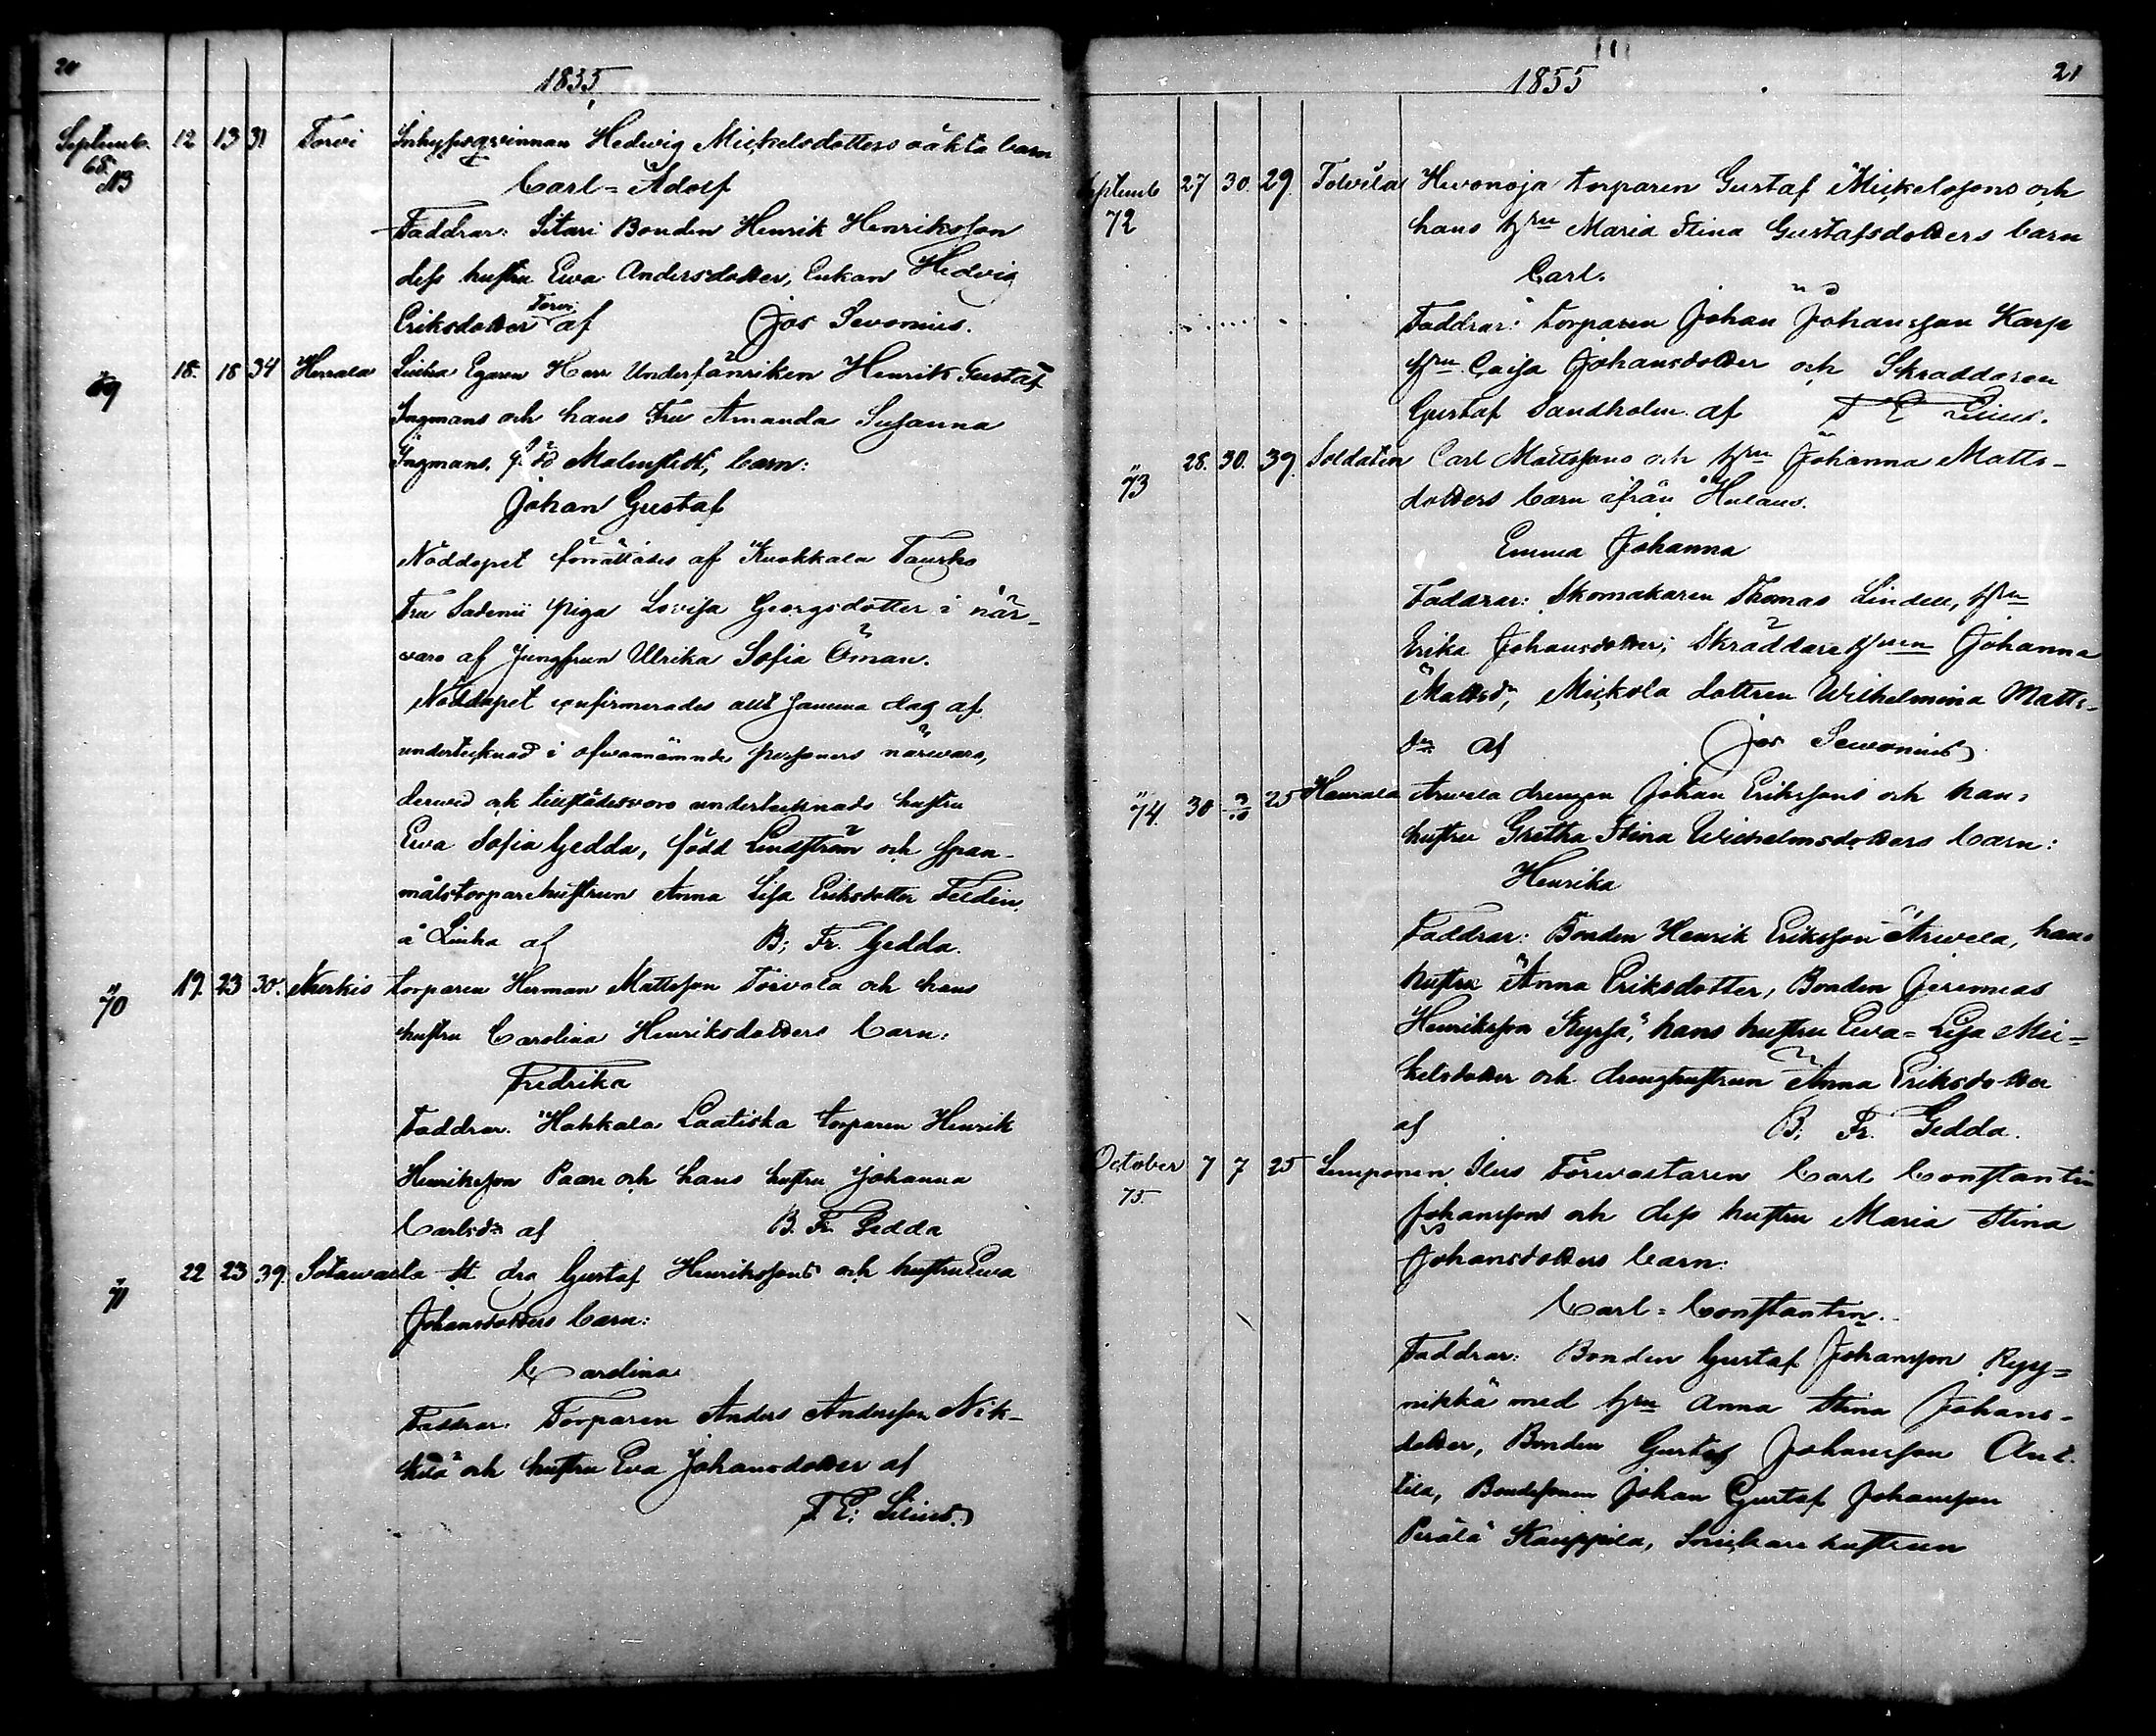 20
1855
Septemb. 12 13 31 Torvi Inhyses qvinnan Hedwig Mickelsdotters oäkta barn
68.
Carl=Adolf
Faddrar: Sitari Bonden Henrik Henriksson
dess hustru Ewa Andersdotter, Enkan Hedvig
Eriksdotter Torvi af Jos Sevonius.
69 18. 18 34 Herrala Egaren Herr Underfänriken Henrik Gustaf
Ingmans och hans Fru Amanda Susanna
Ingmans, född Malmstedt, barn:
Johan Gustaf
Nöddopet förrättades af Kuokkala
Fru piga Lovisa Georgsdotter i när-
varo af Jungfrun Ulrika Sofia Öman.
Nöddopet confirmerades allt samma dag af
undertecknad i ofvannämnde personers närwaro,
derwid ock tillstädesvoro undertecknads hustru
Ewa Sofia Gedda, född Lindström och span-
målstorparehustrun Anna Lisa Eriksdotter
å af B: Fr. Gedda.
70 19. 23 30. Nurkis torparen Herman Mattsson Torvola och hans
hustru Carolina Henriksdotters barn:
Fredrika
Faddrar. Hakkala Laatiska torparen Henrik
Henriksson Paare och hans hustru Johanna
Carlsdr af B. Fr. Gedda
71 22 23 39. Sotawalta Gustaf Henrikssons och hustru Ewa
Johansdotters barn:
Carolina
Faddrar. Torparen Anders Andersson Nik-
kilä och hustru Eva Johansdotter af
F. E. Lilius.
1855
21
Septemb 27 30. 29. Tolvila Hwonoja torparen Gustaf Mickelssons och
72 hans hru Maria Stina Gustafsdotters barn
Carl.
Faddrar: torparen Johan Johansson Karp
hru Cajsa Johansdotter och Skraddaren
Gustaf Sandholm af F E Lilius.
73 28. 30. 39. Soldaten Carl Mattssons och hru Johanna Matts-
dotters barn ifrån
Emma Johanna
Faddrar: Skomakaren Thomas Lindell, hru
Erika Johansdotter; Skräddare hrun Johanna
Mattsdr, Mickola dottren Wilhelmina Matts-
dr af Jos Sewonius
74. 30 3/10 25 Hauvala Arwela drengen Johan Erikssons och hans
hustru Gretha Stina Wilhelmsdotters barn:
Henrika
Faddrar: Bonden Henrik Eriksson Arwela, hans
hustru Anna Eriksdotter, Bonden Jeremias
Henriksson hans hustru Ewa=Lisa Mic-
kelsdotter och drenghustrun Anna Eriksdotter
af B: Fr. Gedda.
October 7 7 25 Lemponen Förwaltaren Carl Constantin
75. Johanssons och dess hustru Maria Stina
Johansdotters barn:
Carl=Constantin.
Faddrar: Bonden Gustaf Johansson Ryy-
nikkä med hru Anna Stina Johans-
dotter, Bonden Gustaf Johansson Ant-
tila, Bondesonen Johan Gustaf Johansson
Perälä Kauppila, Snickare hustrun